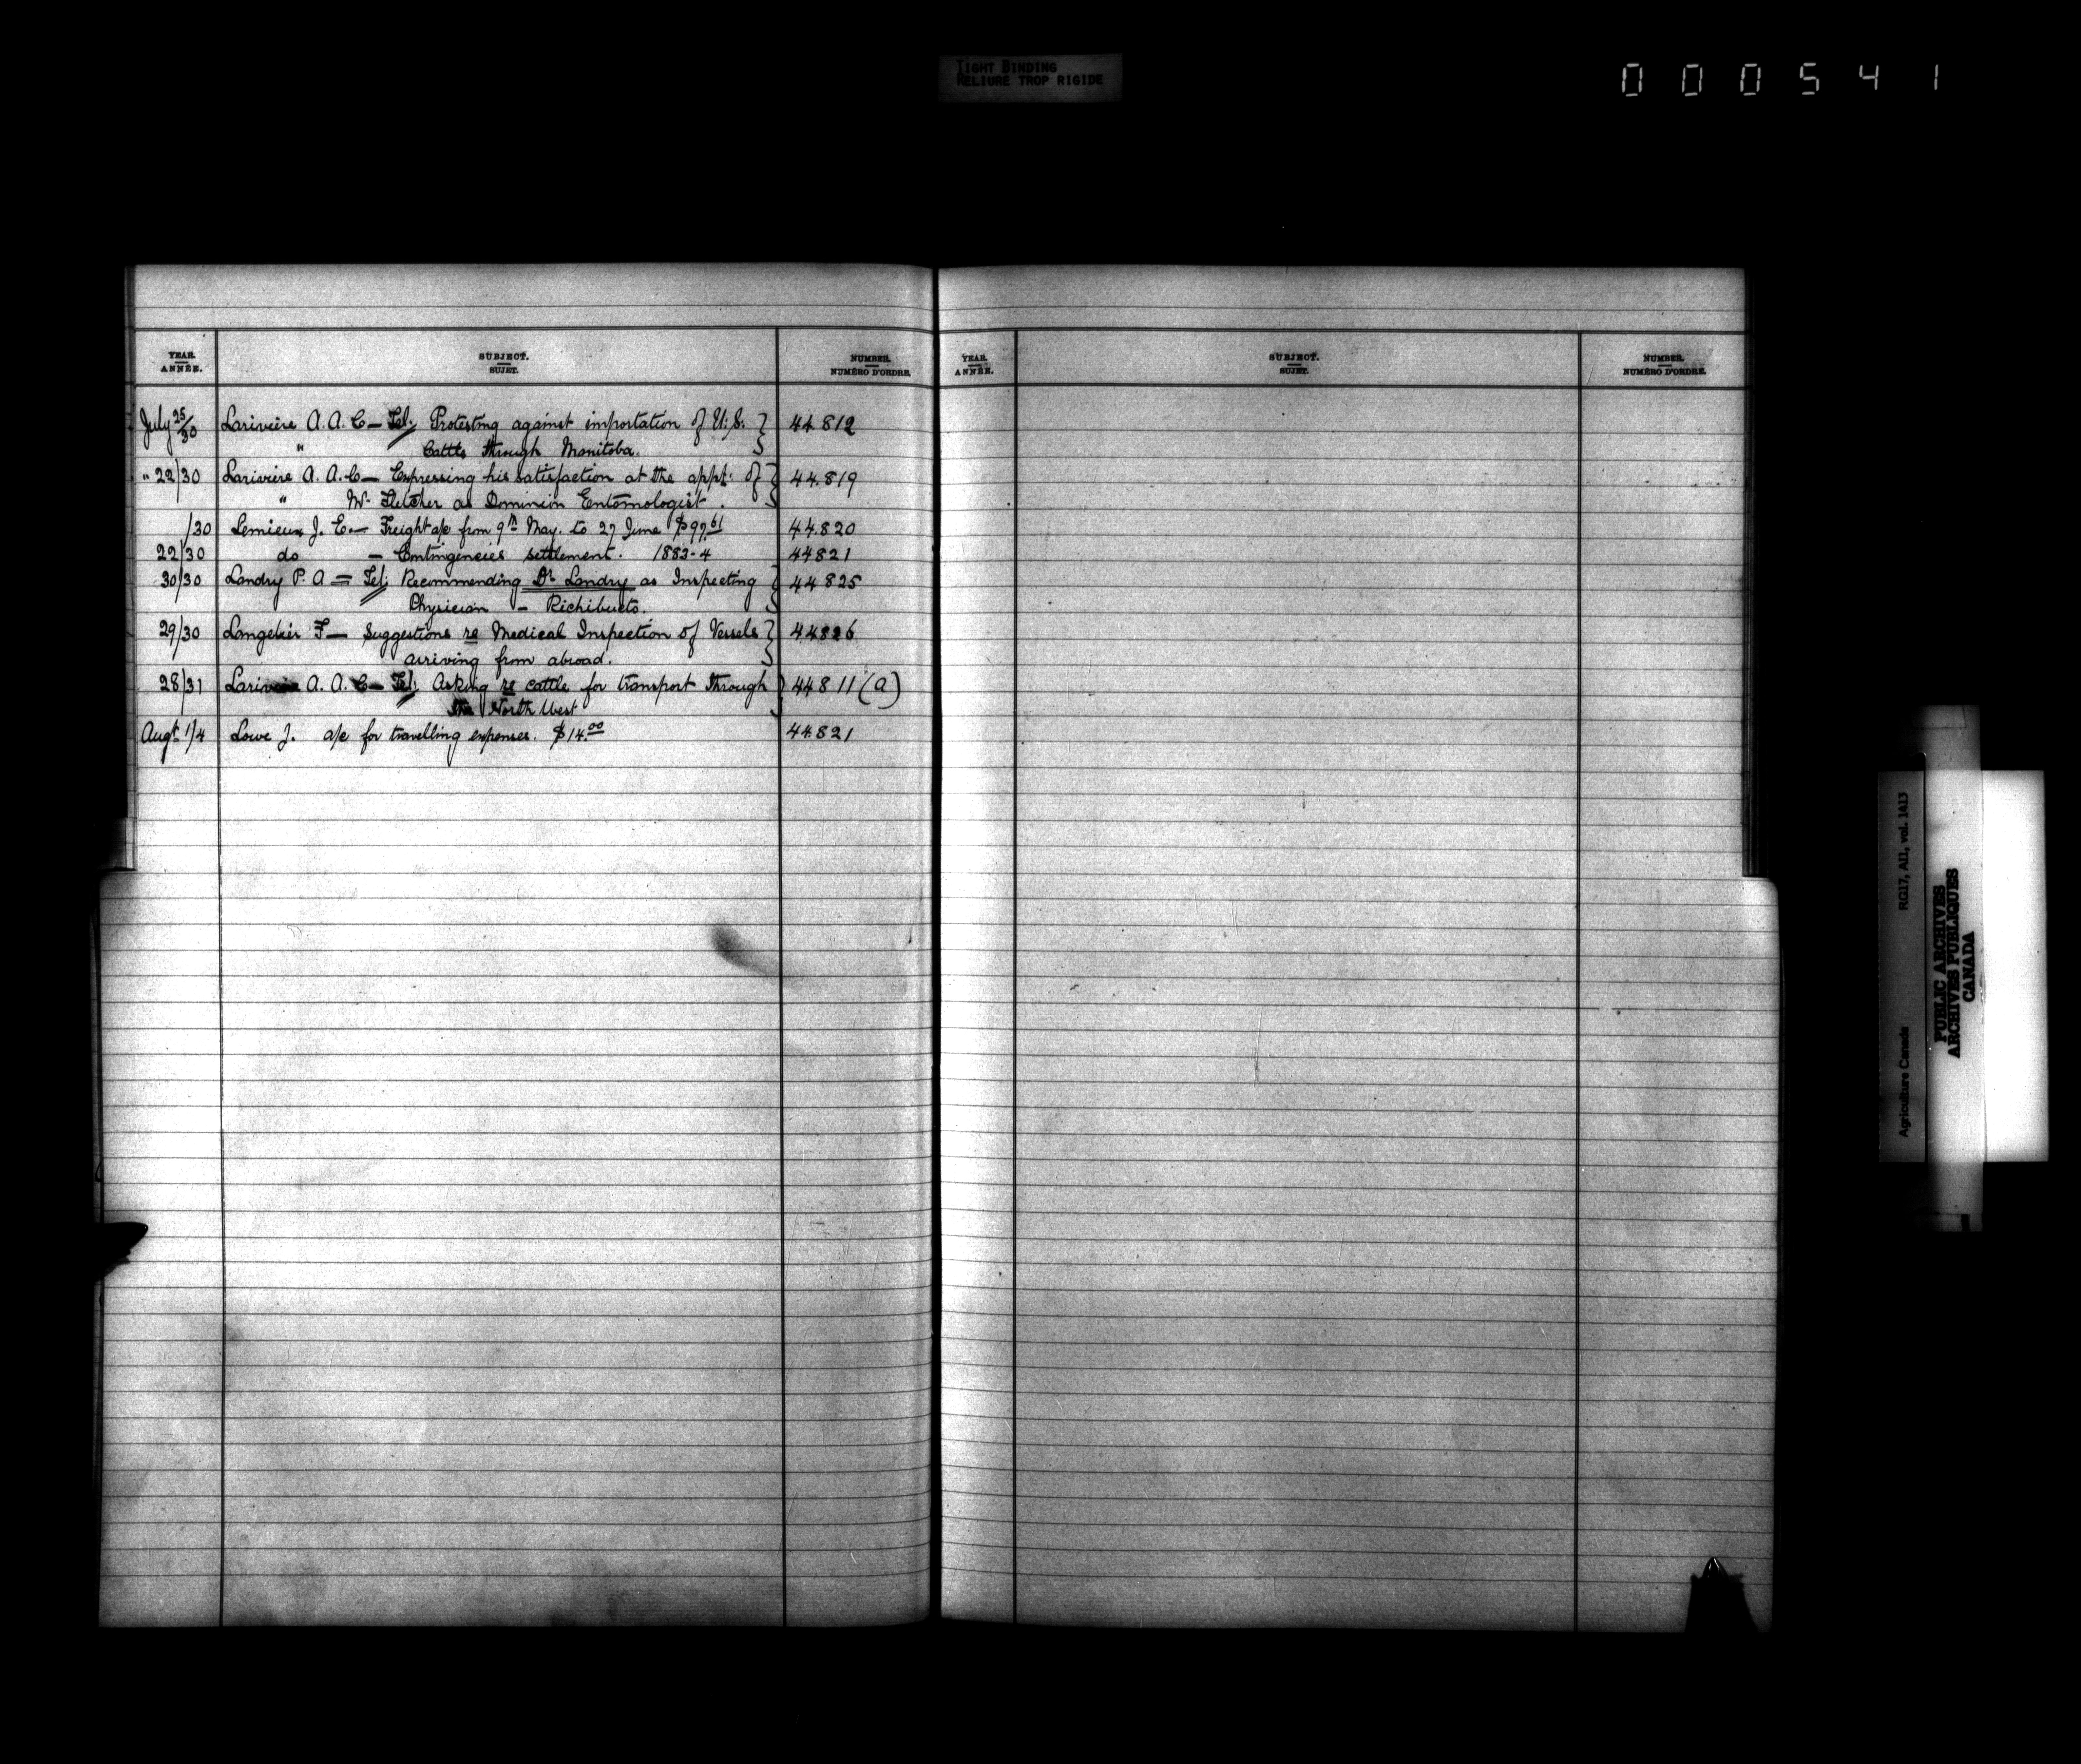 TIGHT BINDING
RELIURE TROP RIGIDE
000541
YEAR. ANNÉE. SUBJECT. SUJET. NUMBER. NUMÉRO D'ORDRE. YEAR. ANNÉE. SUBJECT. SUJET. NUMBER. NUMÉRO D'ORDRE.
July 25/30 Larivière A. A. C – Tel: Protesting against importation of U.S. } 44.812
" Cattle through Manitoba.
" 22/30 Larivière A. A. C – Expressing his satisfaction at the appt. of } 44.819
" W. Fletcher as Dominion Entomologist.
/30 Lemieux J. E. – Freight a/c from 9th May. to 27 June $97.61 44.820
22/30 do – Contingencies settlement. 1883-4 44821
30/30 Landry P. A = Tel: Recommending Dr Landry as Inspecting } 44825
Physician – Richibucto.
29/30 Langelier F – Suggestions re Medical Inspection of Vessels } 44826
arriving from abroad.
28/31 Lariviere A. A. C – Tel: Asking re cattle for transport through } 44811(a)
the North West
Augt 1/4 Lowe J. a/c for travelling expenses. $14.00 44.821
Agriculture Canada RG17, AII, vol. 1413
PUBLIC ARCHIVES
ARCHIVES PUBLIQUES
CANADA